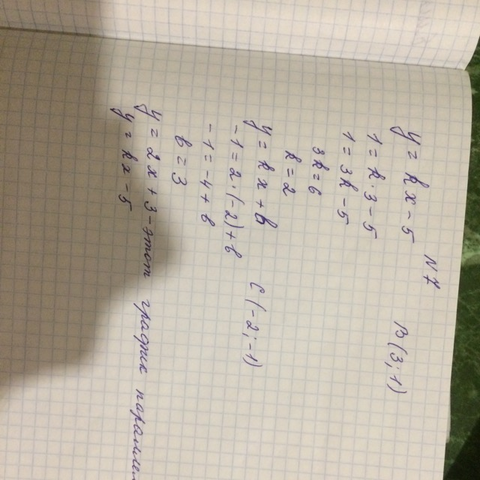 N 7
y = kx - 5 B(3; 1)
1 = k·3 - 5
1 = 3k - 5
3k = 6
k = 2
y = kx + b C(-2; -1)
-1 = 2·(-2) + b
-1 = -4 + b
b = 3
y = 2x + 3 - этот график параллел
y = kx - 5